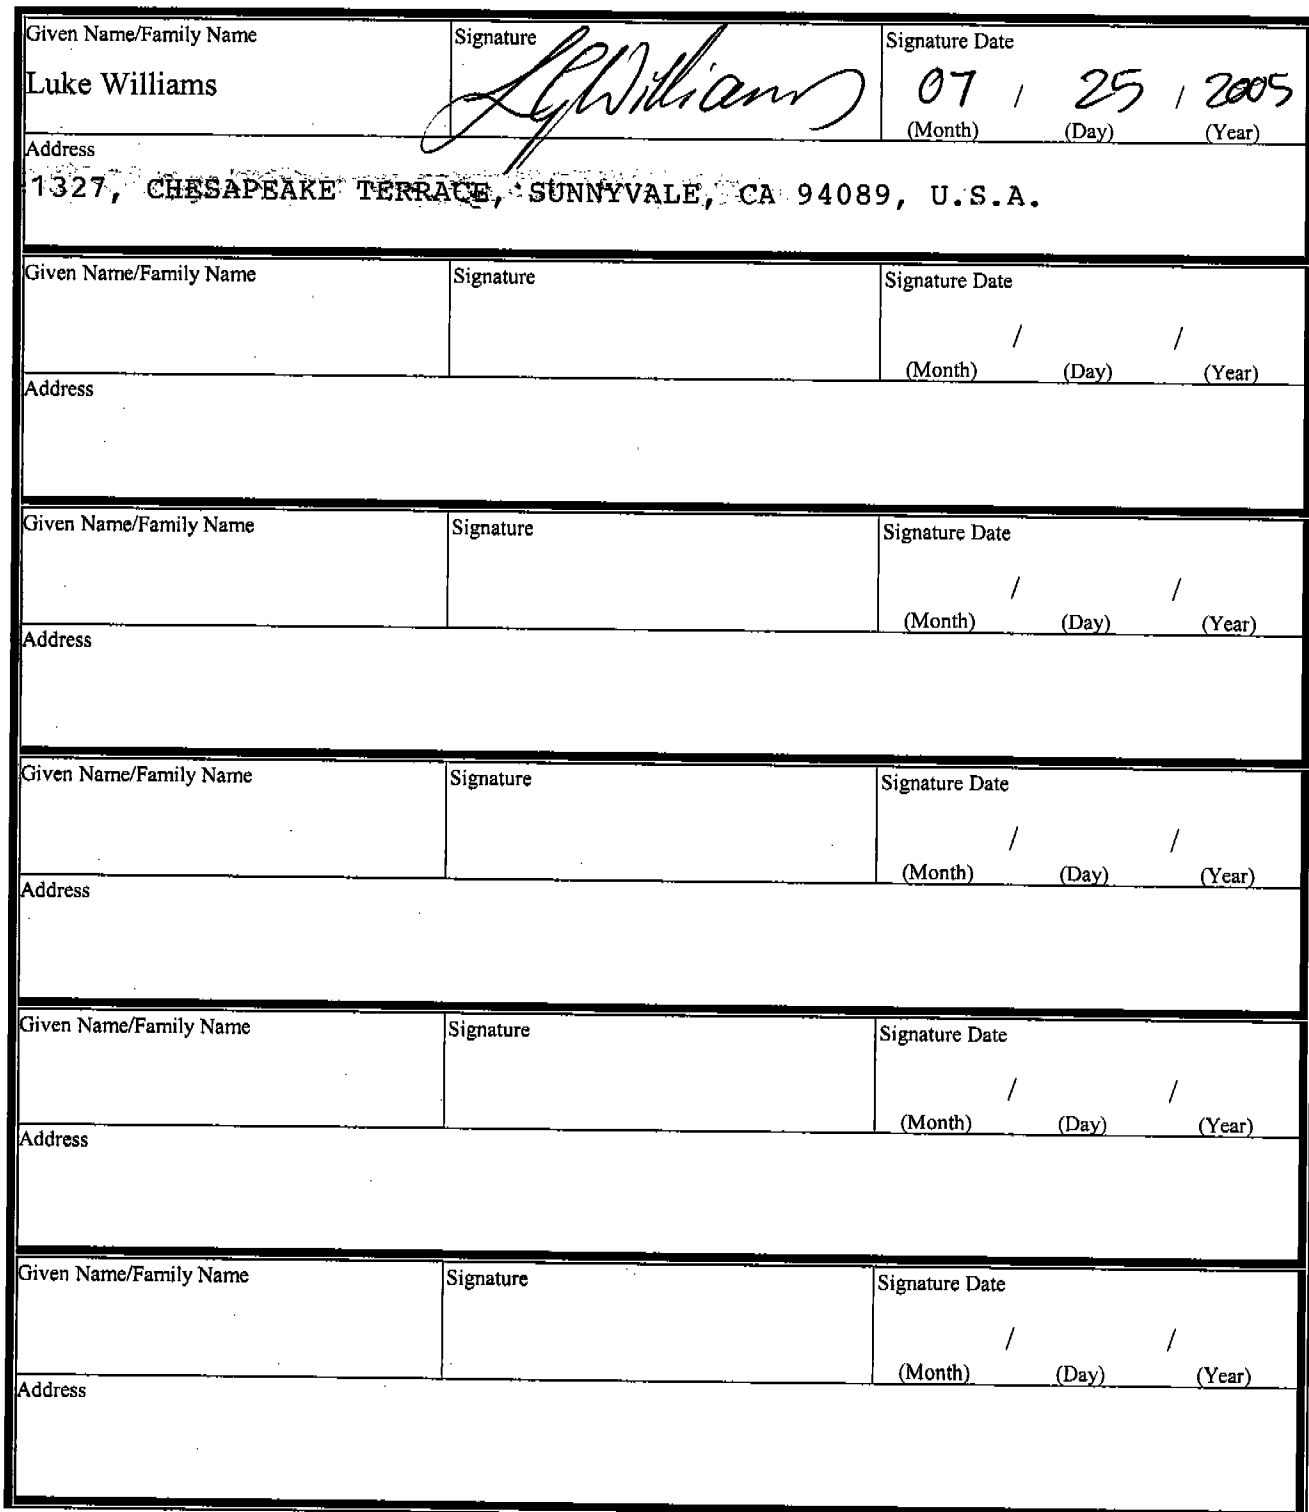 Given Name/Family Name Signature Signature Date
Luke Williams LGWilliams 07 / 25 / 2005
(Month) (Day) (Year)
Address
1327, CHESAPEAKE TERRACE, SUNNYVALE, CA 94089, U.S.A.
Given Name/Family Name Signature Signature Date
/ /
(Month) (Day) (Year)
Address
Given Name/Family Name Signature Signature Date
/ /
(Month) (Day) (Year)
Address
Given Name/Family Name Signature Signature Date
/ /
(Month) (Day) (Year)
Address
Given Name/Family Name Signature Signature Date
/ /
(Month) (Day) (Year)
Address
Given Name/Family Name Signature Signature Date
/ /
(Month) (Day) (Year)
Address